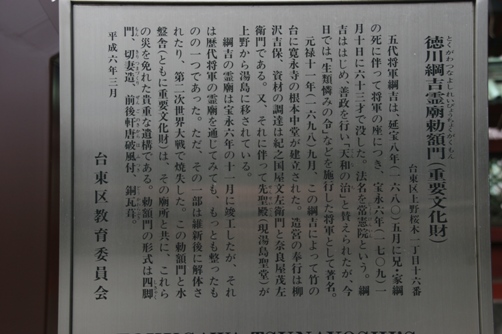 徳川綱吉霊廟勅額門(重要文化財)
台東区上野桜木一丁目十六番
五代将軍綱吉は、延宝八年(一六八〇)五月に兄・家綱
の死に伴って将軍の座につき、宝永六年(一七〇九)一
月十日に六十三才で没した。法名を常憲院という。綱
吉ははじめ、善政を行い「天和の治」と賛えられたが、今
日では「生類憐みの令」などを施行した将軍として著名。
元禄十一年(一六九八)九月、この綱吉によって竹の
台に寛永寺の根本中堂が建立された。造営の奉行は柳
沢吉保、資材の調達は紀之国屋文左衛門と奈良屋茂左
衛門である。又、それに伴って先聖殿(現湯島聖堂)が
上野から湯島に移されている。
綱吉の霊廟は宝永六年の十一月に竣工したが、それ
は歴代将軍の霊廟を通じてみても、もっとも整ったも
のの一つであった。ただ、その一部は維新後に解体さ
れたり、第二次世界大戦で焼失した。この勅額門と水
盤舎(ともに重要文化財)は、その廟所と共に、これら
の災を免れた貴重な遺構である。勅額門の形式は四脚
門、切妻造、前後軒唐破風付、銅瓦葺。
平成六年三月
台東区教育委員会